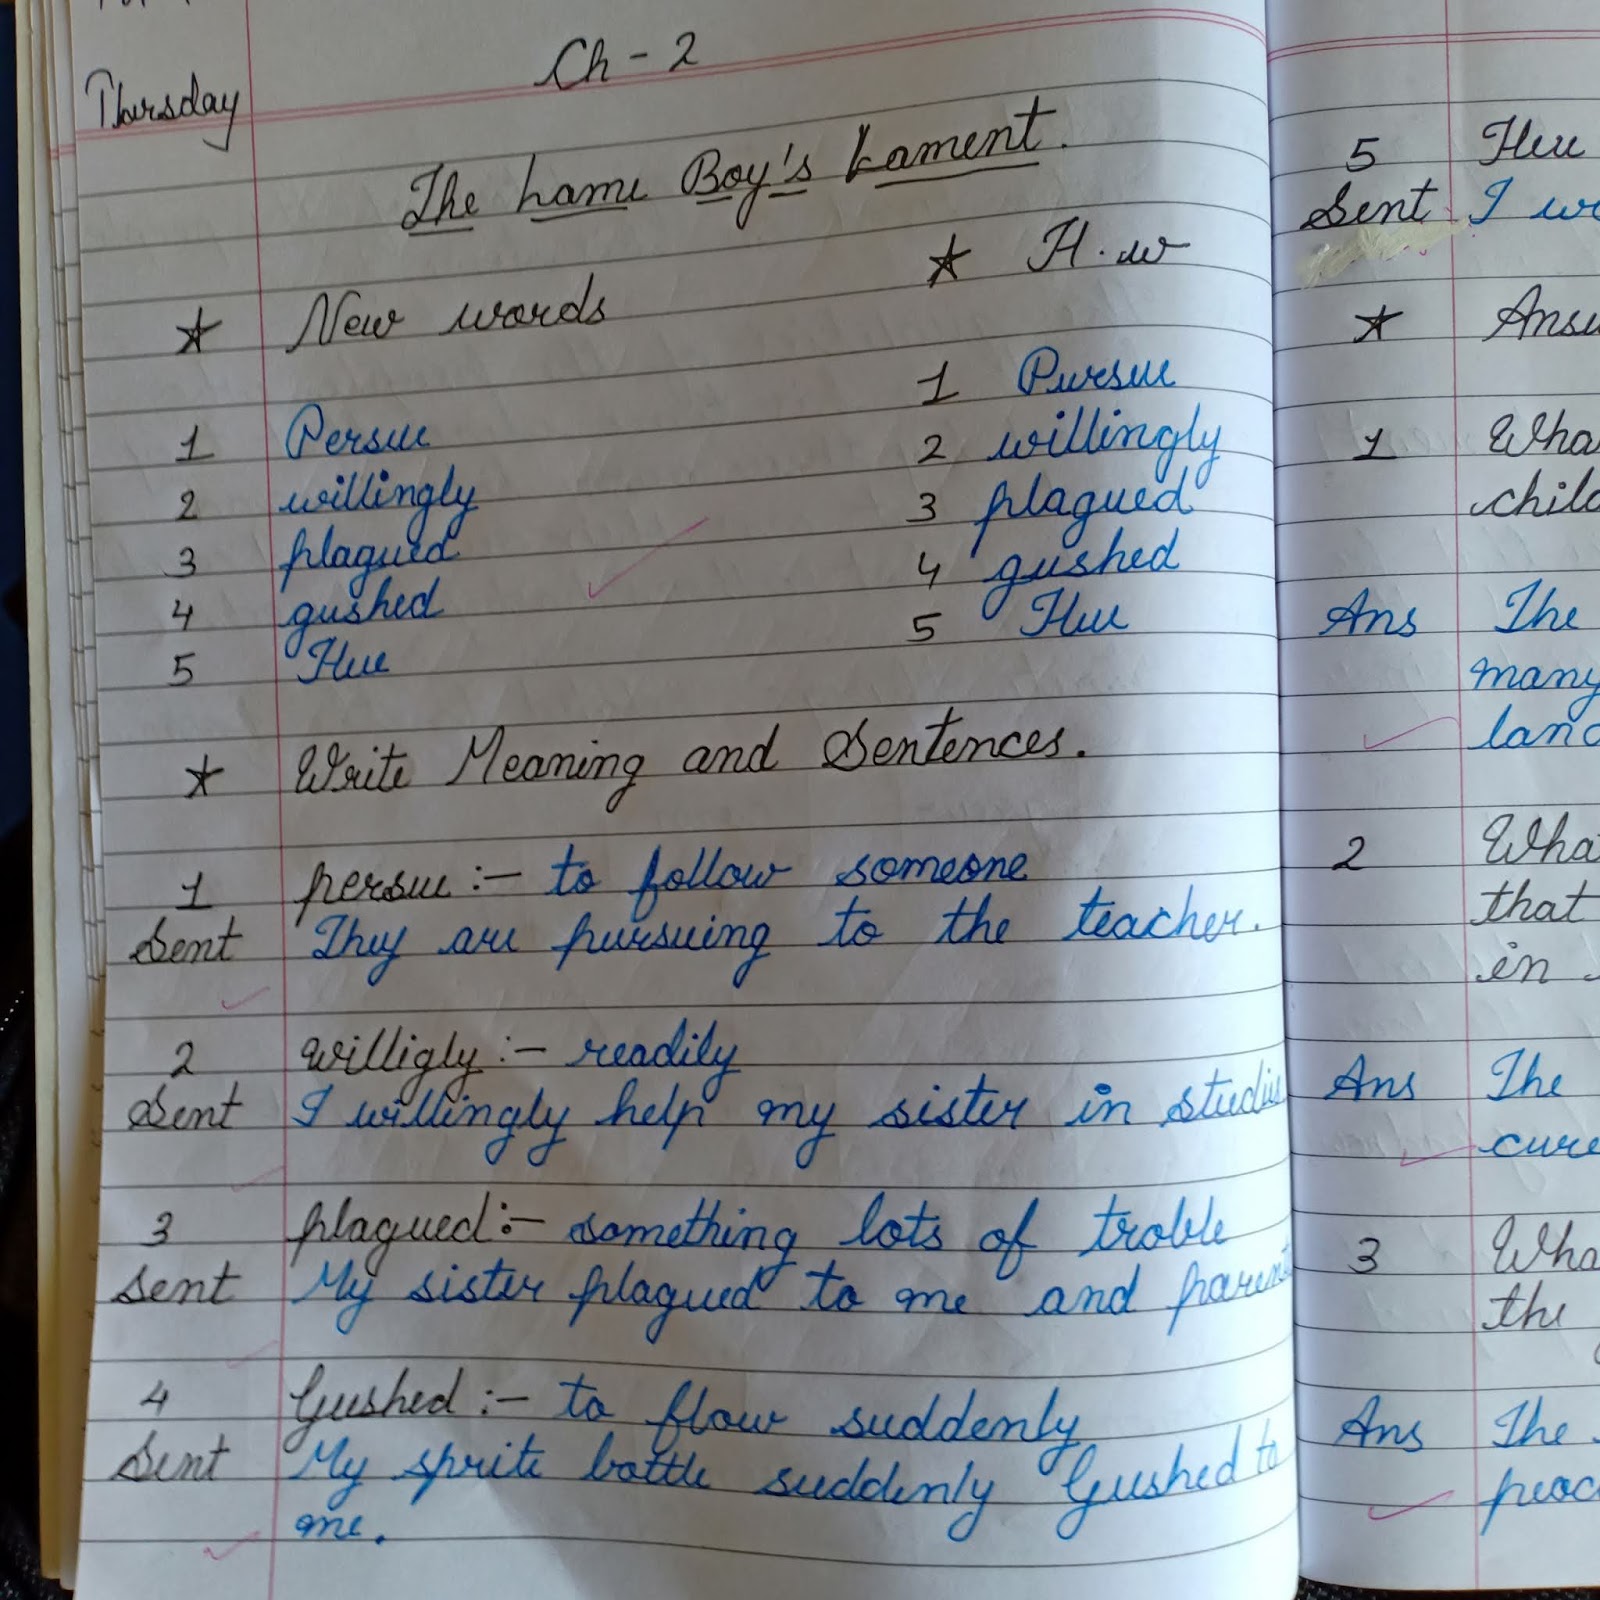 Thursday
Ch - 2
The Lame Boy's Lament.
* New words
* H.w
1 Persue
2 willingly
3 plagued
4 gushed
5 Hue
1 Pursue
2 willingly
3 plagued
4 gushed
5 Hue
* Write Meaning and Sentences.
1 persue :- to follow someone
Sent They are pursuing to the teacher.
2 willigly :- readily
Sent I willingly help my sister in studies
3 plagued :- something lots of troble
Sent My sister plagued to me and parents
4 Gushed :- to flow suddenly
Sent My sprite bottle suddenly Gushed to
me.
5 Hue
Sent I
*
1
child
Ans The
many
land
2
that
in
Ans The
cure
3
the
Ans The